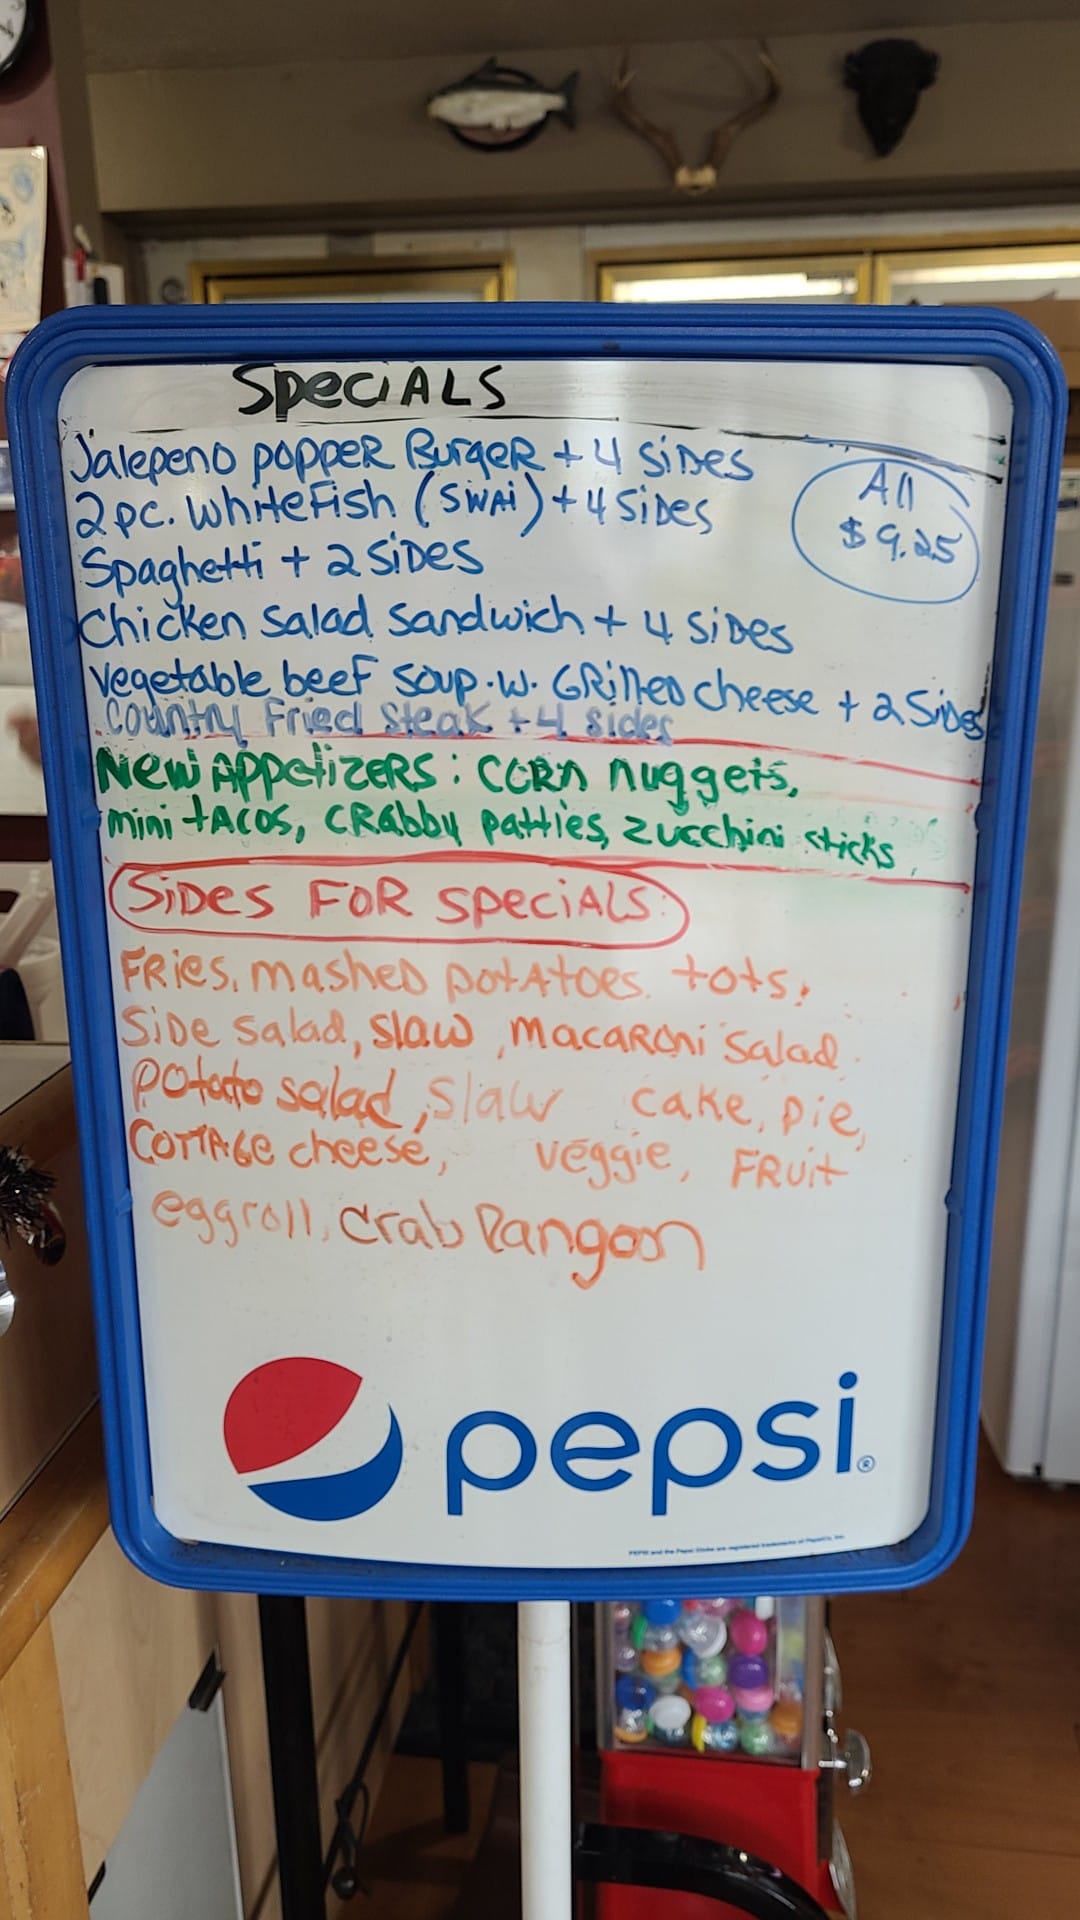 Specials
Jalepeno popper Burger + 4 sides
All
$9.25
2pc. Whitefish (swai) + 4 sides
Spaghetti + 2 sides
Chicken salad sandwich + 4 sides
Vegetable beef soup w. Grilled cheese + 2 sides
Country Fried Steak + 4 sides
New Appetizers: corn nuggets,
mini tacos, crabby patties, zucchini sticks
Sides For Specials
Fries, mashed potatoes, tots,
Side salad, slaw, macaroni salad
potato salad, slaw cake, pie,
Cottage cheese, veggie, Fruit
eggroll, Crab Rangoon
pepsi®
PEPSI and the Pepsi Globe are registered trademarks of PepsiCo, Inc.